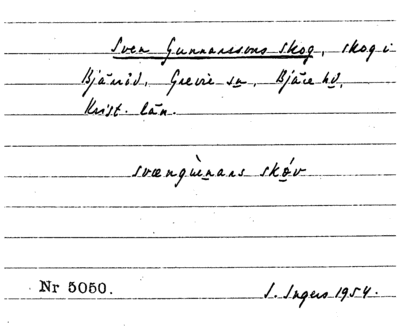 Sven Gunnarssons skog, skog i
Bjäröd, Grevie sn, Bjäre hd,
Krist. län.
svængùnans skóv
Nr 5050.
I. Ingers 1954.